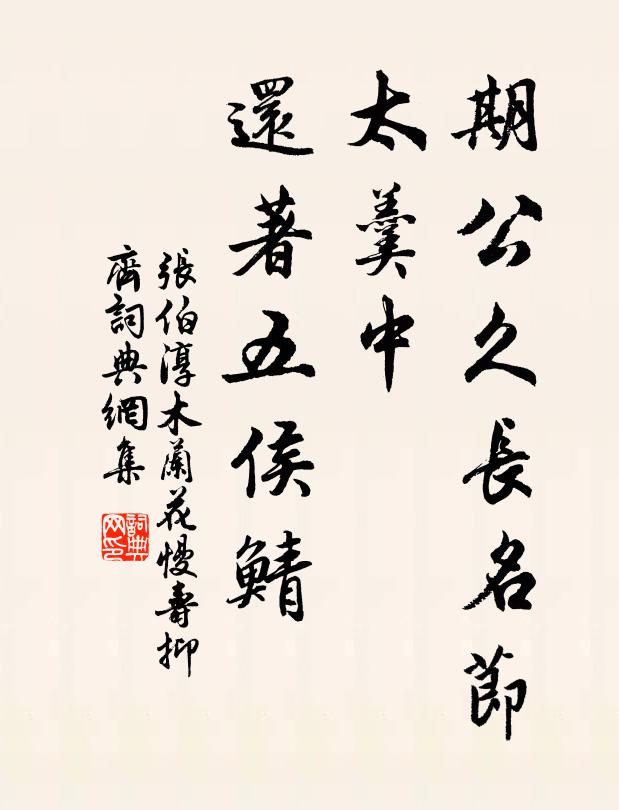 期公久長名節
太羹中
還著五侯鯖
張伯淳木蘭花慢壽抑
齋詞典網集
詞典
网印